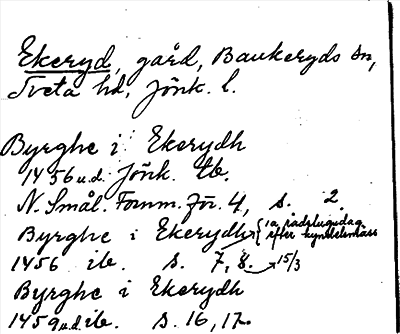 Ekeryd, gård, Bankeryds sn,
Tveta hd, Jönk. l.
Byrghe i Ekerydh
1456 u.d. Jönk. tb.
N. Smål. Fornm. för. 4, s. 2.
Byrghe i Ekerydh {1a rådstugudag
efter kyndelsmäss
1456 ib. s. 7, 8. → 15/3
Byrghe i Ekerydh
1459 u.d. ib. s. 16, 17.